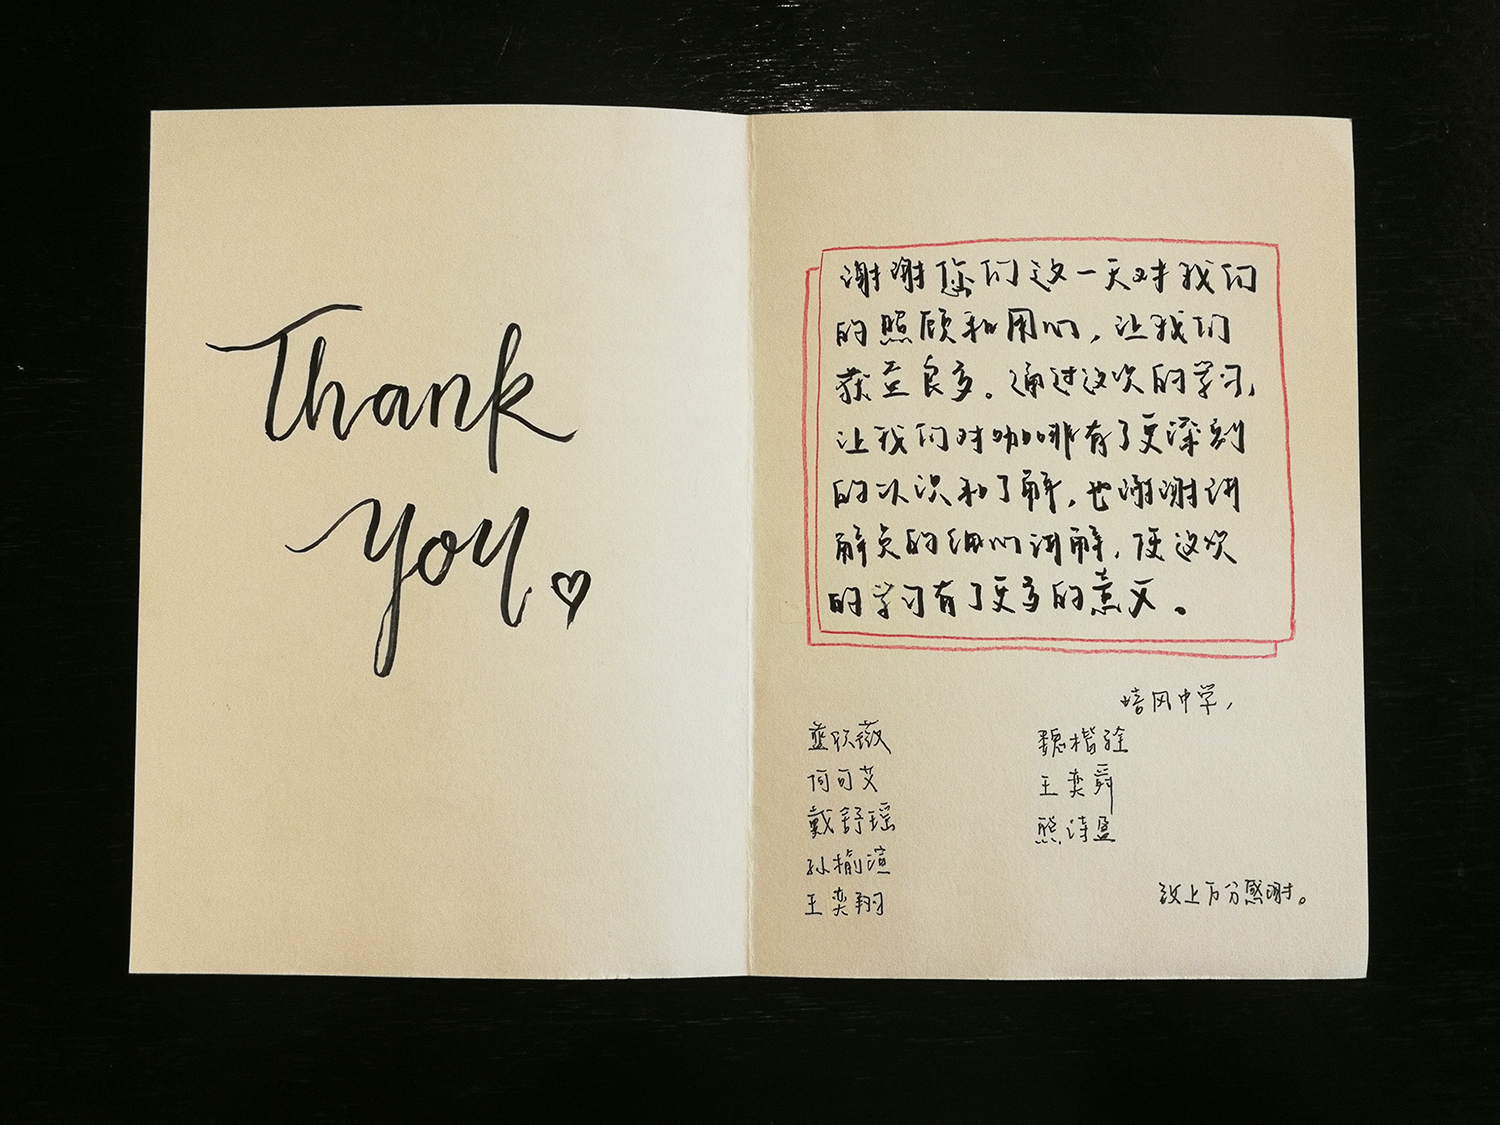 Thank
you
谢谢您们这一天对我们
的照顾和用心，让我们
获益良多。通过这次的学习，
让我们对咖啡有了更深刻
的认识和了解，也谢谢讲
解员的细心讲解，使这次
的学习有了更多的意义。
培风中学，
蓝欣薇
何可艾
戴舒瑶
孙榆渲
王奕翔
魏楷
王奕舜
熊诗盈
致上万分感谢。